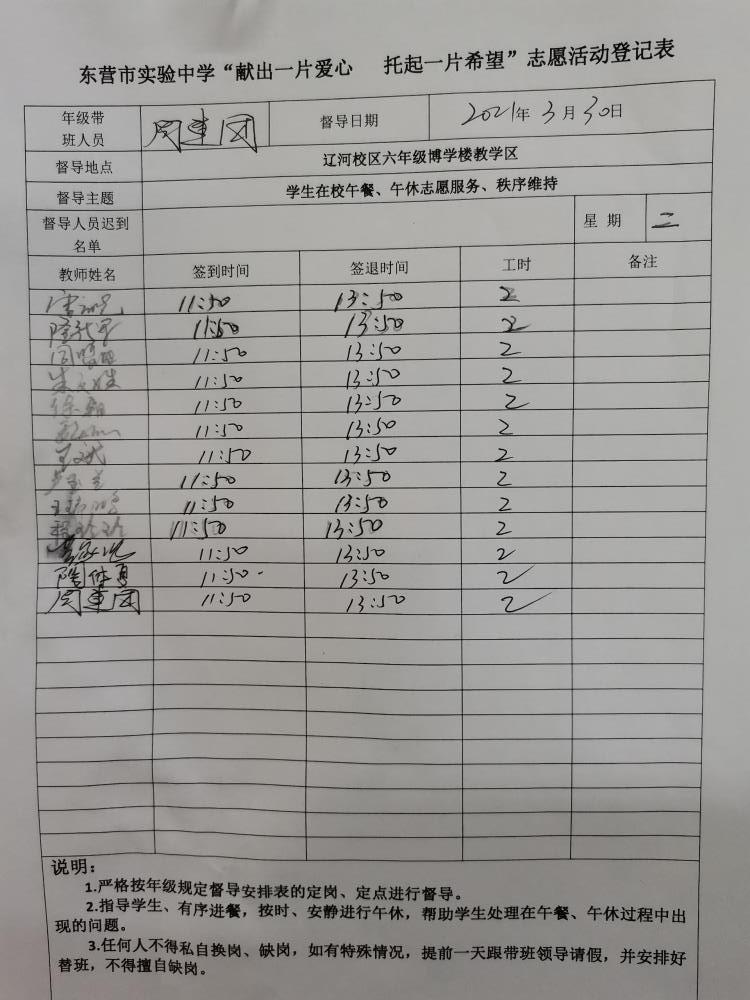 东营市实验中学“献出一片爱心 托起一片希望”志愿活动登记表
年级带班人员 周建团 督导日期 2021年3月30日
督导地点 辽河校区六年级博学楼教学区
督导主题 学生在校午餐、午休志愿服务、秩序维持
督导人员迟到名单 星期 二
教师姓名 签到时间 签退时间 工时 备注
11:50 13:50 2
11:50 13:50 2
11:50 13:50 2
11:50 13:50 2
11:50 13:50 2
11:50 13:50 2
11:50 13:50 2
11:50 13:50 2
11:50 13:50 2
11:50 13:50 2
11:50 13:50 2
11:50 13:50 2
周建团 11:50 13:50 2
说明：
1.严格按年级规定督导安排表的定岗、定点进行督导。
2.指导学生、有序进餐，按时、安静进行午休，帮助学生处理在午餐、午休过程中出
现的问题。
3.任何人不得私自换岗、缺岗，如有特殊情况，提前一天跟带班领导请假，并安排好
替班，不得擅自缺岗。